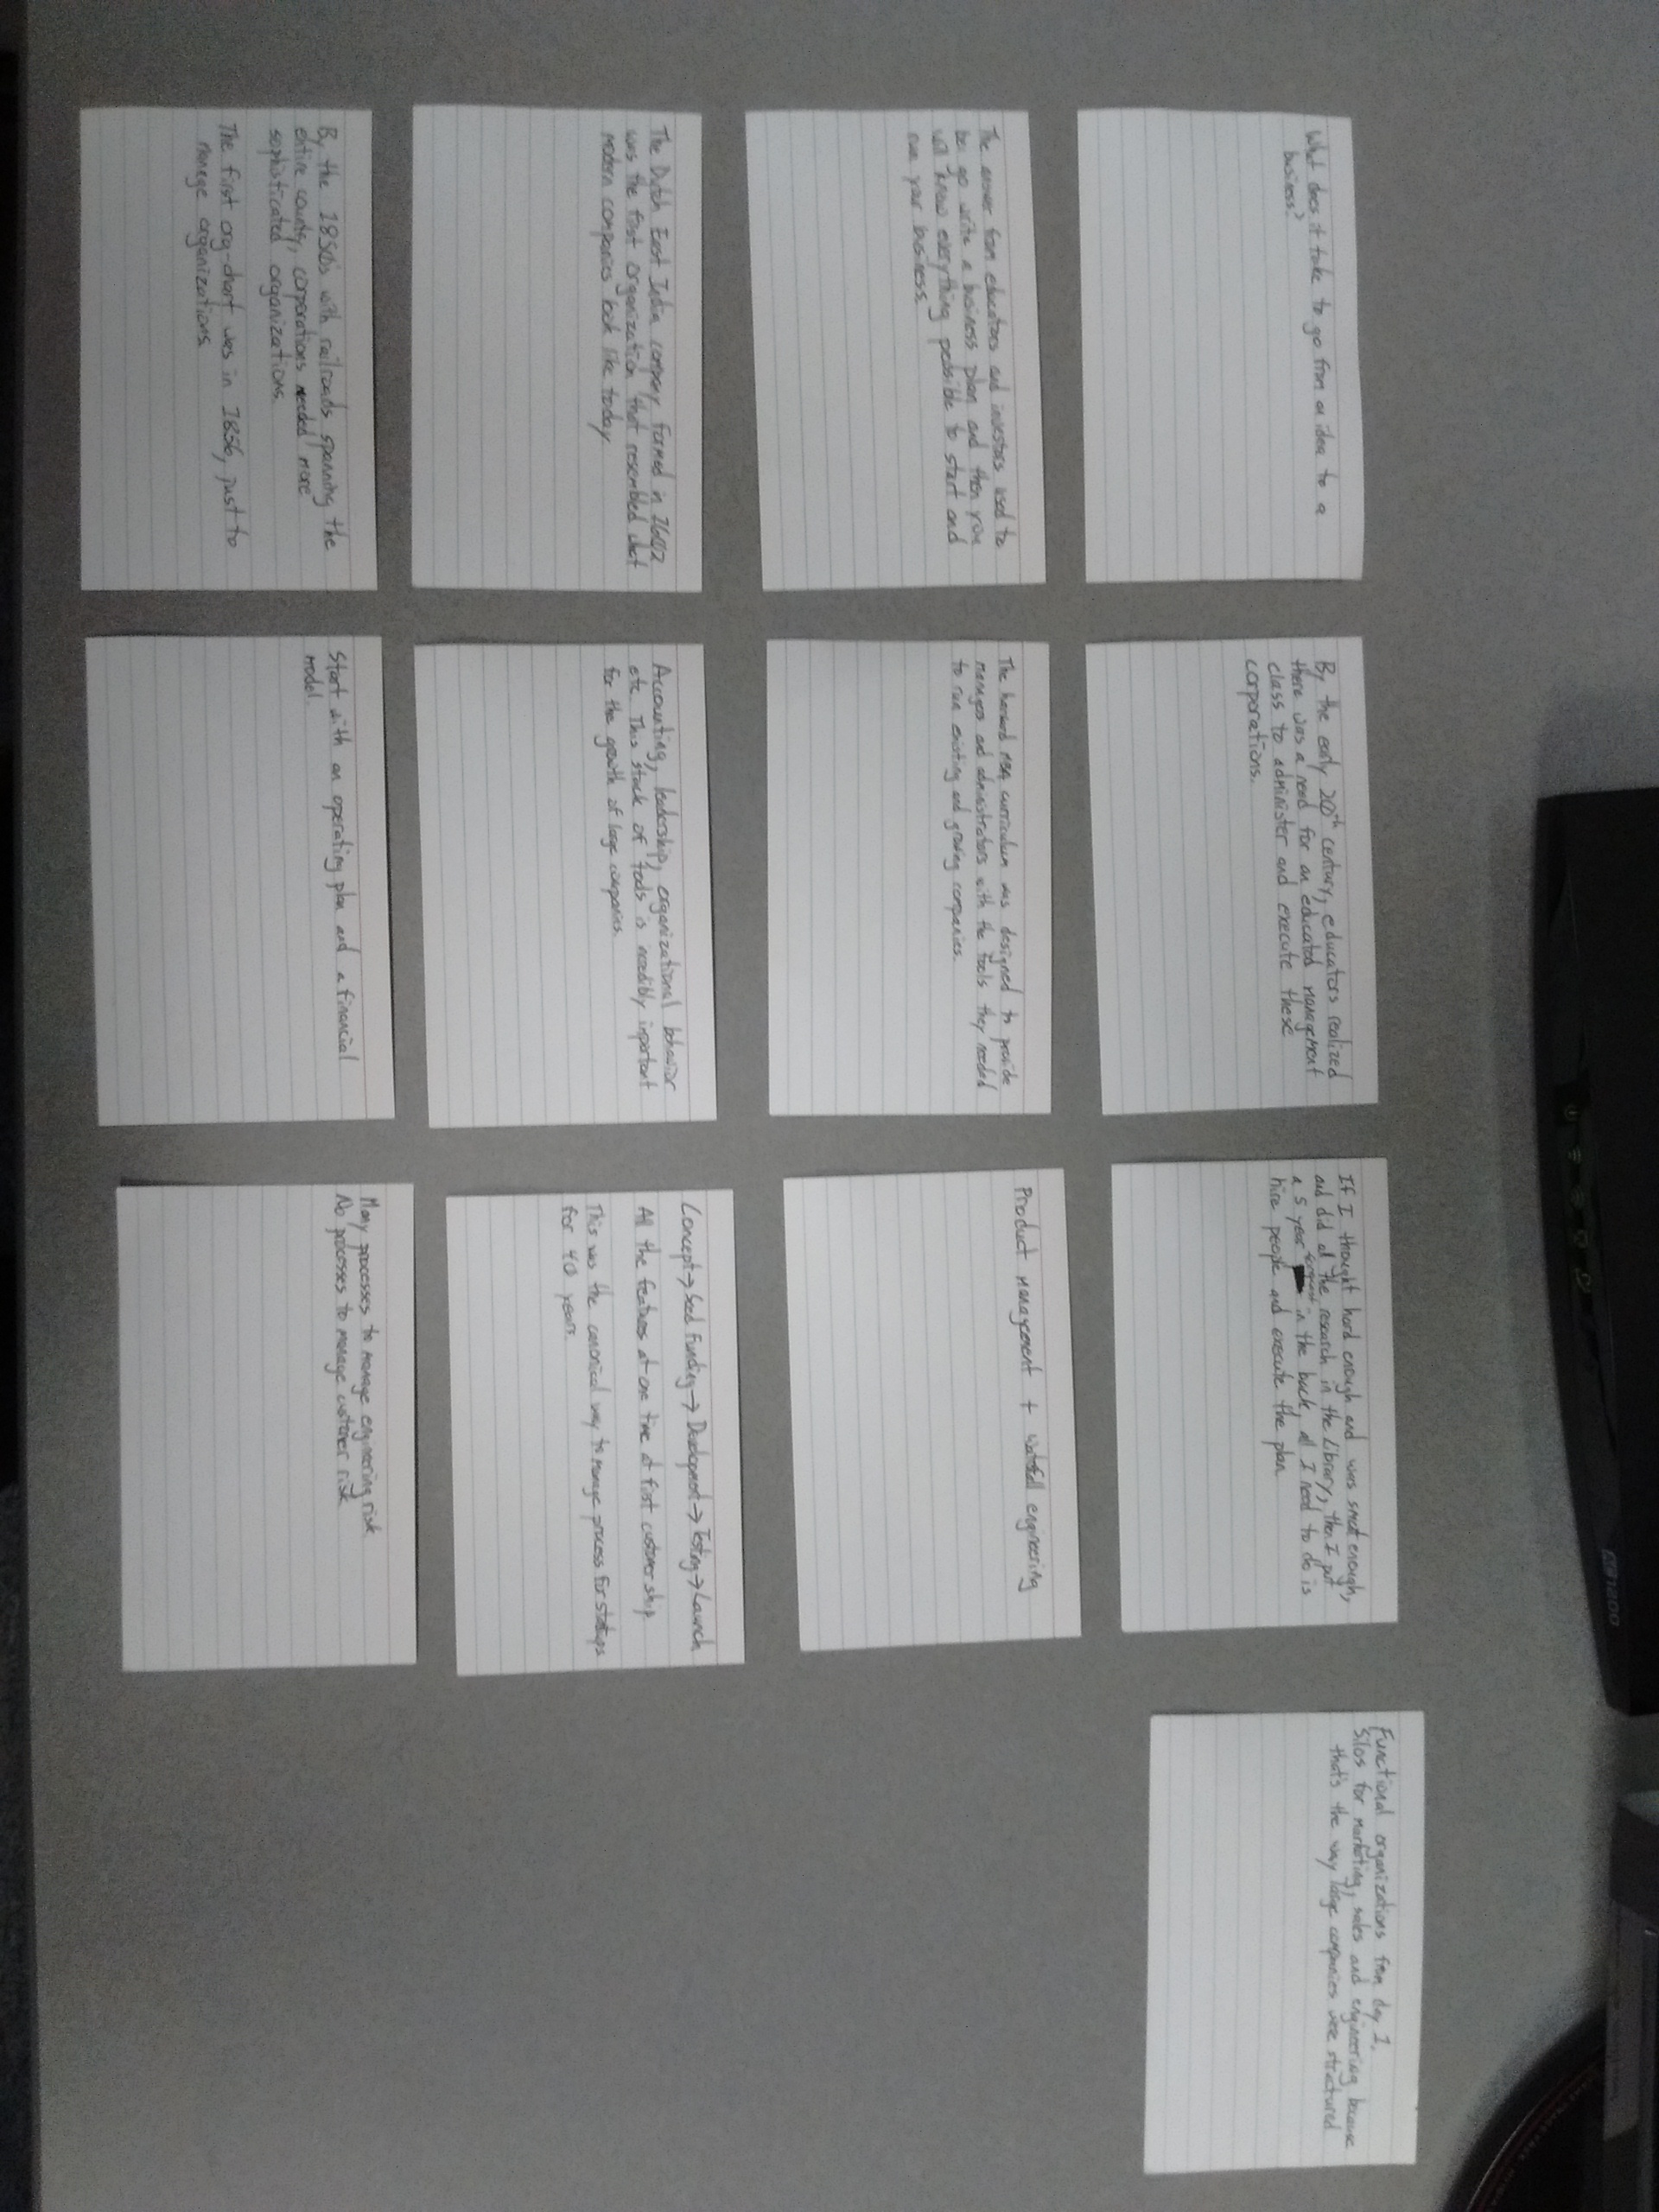 What does it take to go from an idea to a
business?
The answer from educators and investors used to
be: go write a business plan and then you
will know everything possible to start and
run your business.
The Dutch East India company, formed in 1602
was the first organization that resembled what
modern companies look like today.
By the 1850's with railroads spanning the
entire county, corporations needed more
sophisticated organizations.
The first org-chart was in 1856, just to
manage organizations.
By the early 20th century, educators realized
there was a need for an educated management
class to administer and execute these
corporations.
The harvard MBA curriculum was designed to provide
managers and administrators with the tools they needed
to run existing and growing companies.
Accounting, leadership, organizational behavior
etc. This stack of tools is incredibly important
for the growth of large companies.
Start with an operating plan and a financial
model.
If I thought hard enough and was smart enough,
and did all the research in the library, then I put
a 5 year forecast in the back, all I need to do is
hire people and execute the plan.
Product management + waterfall engineering
Concept → Seed Funding → Development → Testing → Launch
All the features at one time at first customer ship.
This was the canonical way to manage process for startups
for 40 years.
Many processes to manage engineering risk.
No processes to manage customer risk.
Functional organizations from day 1.
Silos for marketing, sales and engineering because
that's the way large companies were structured